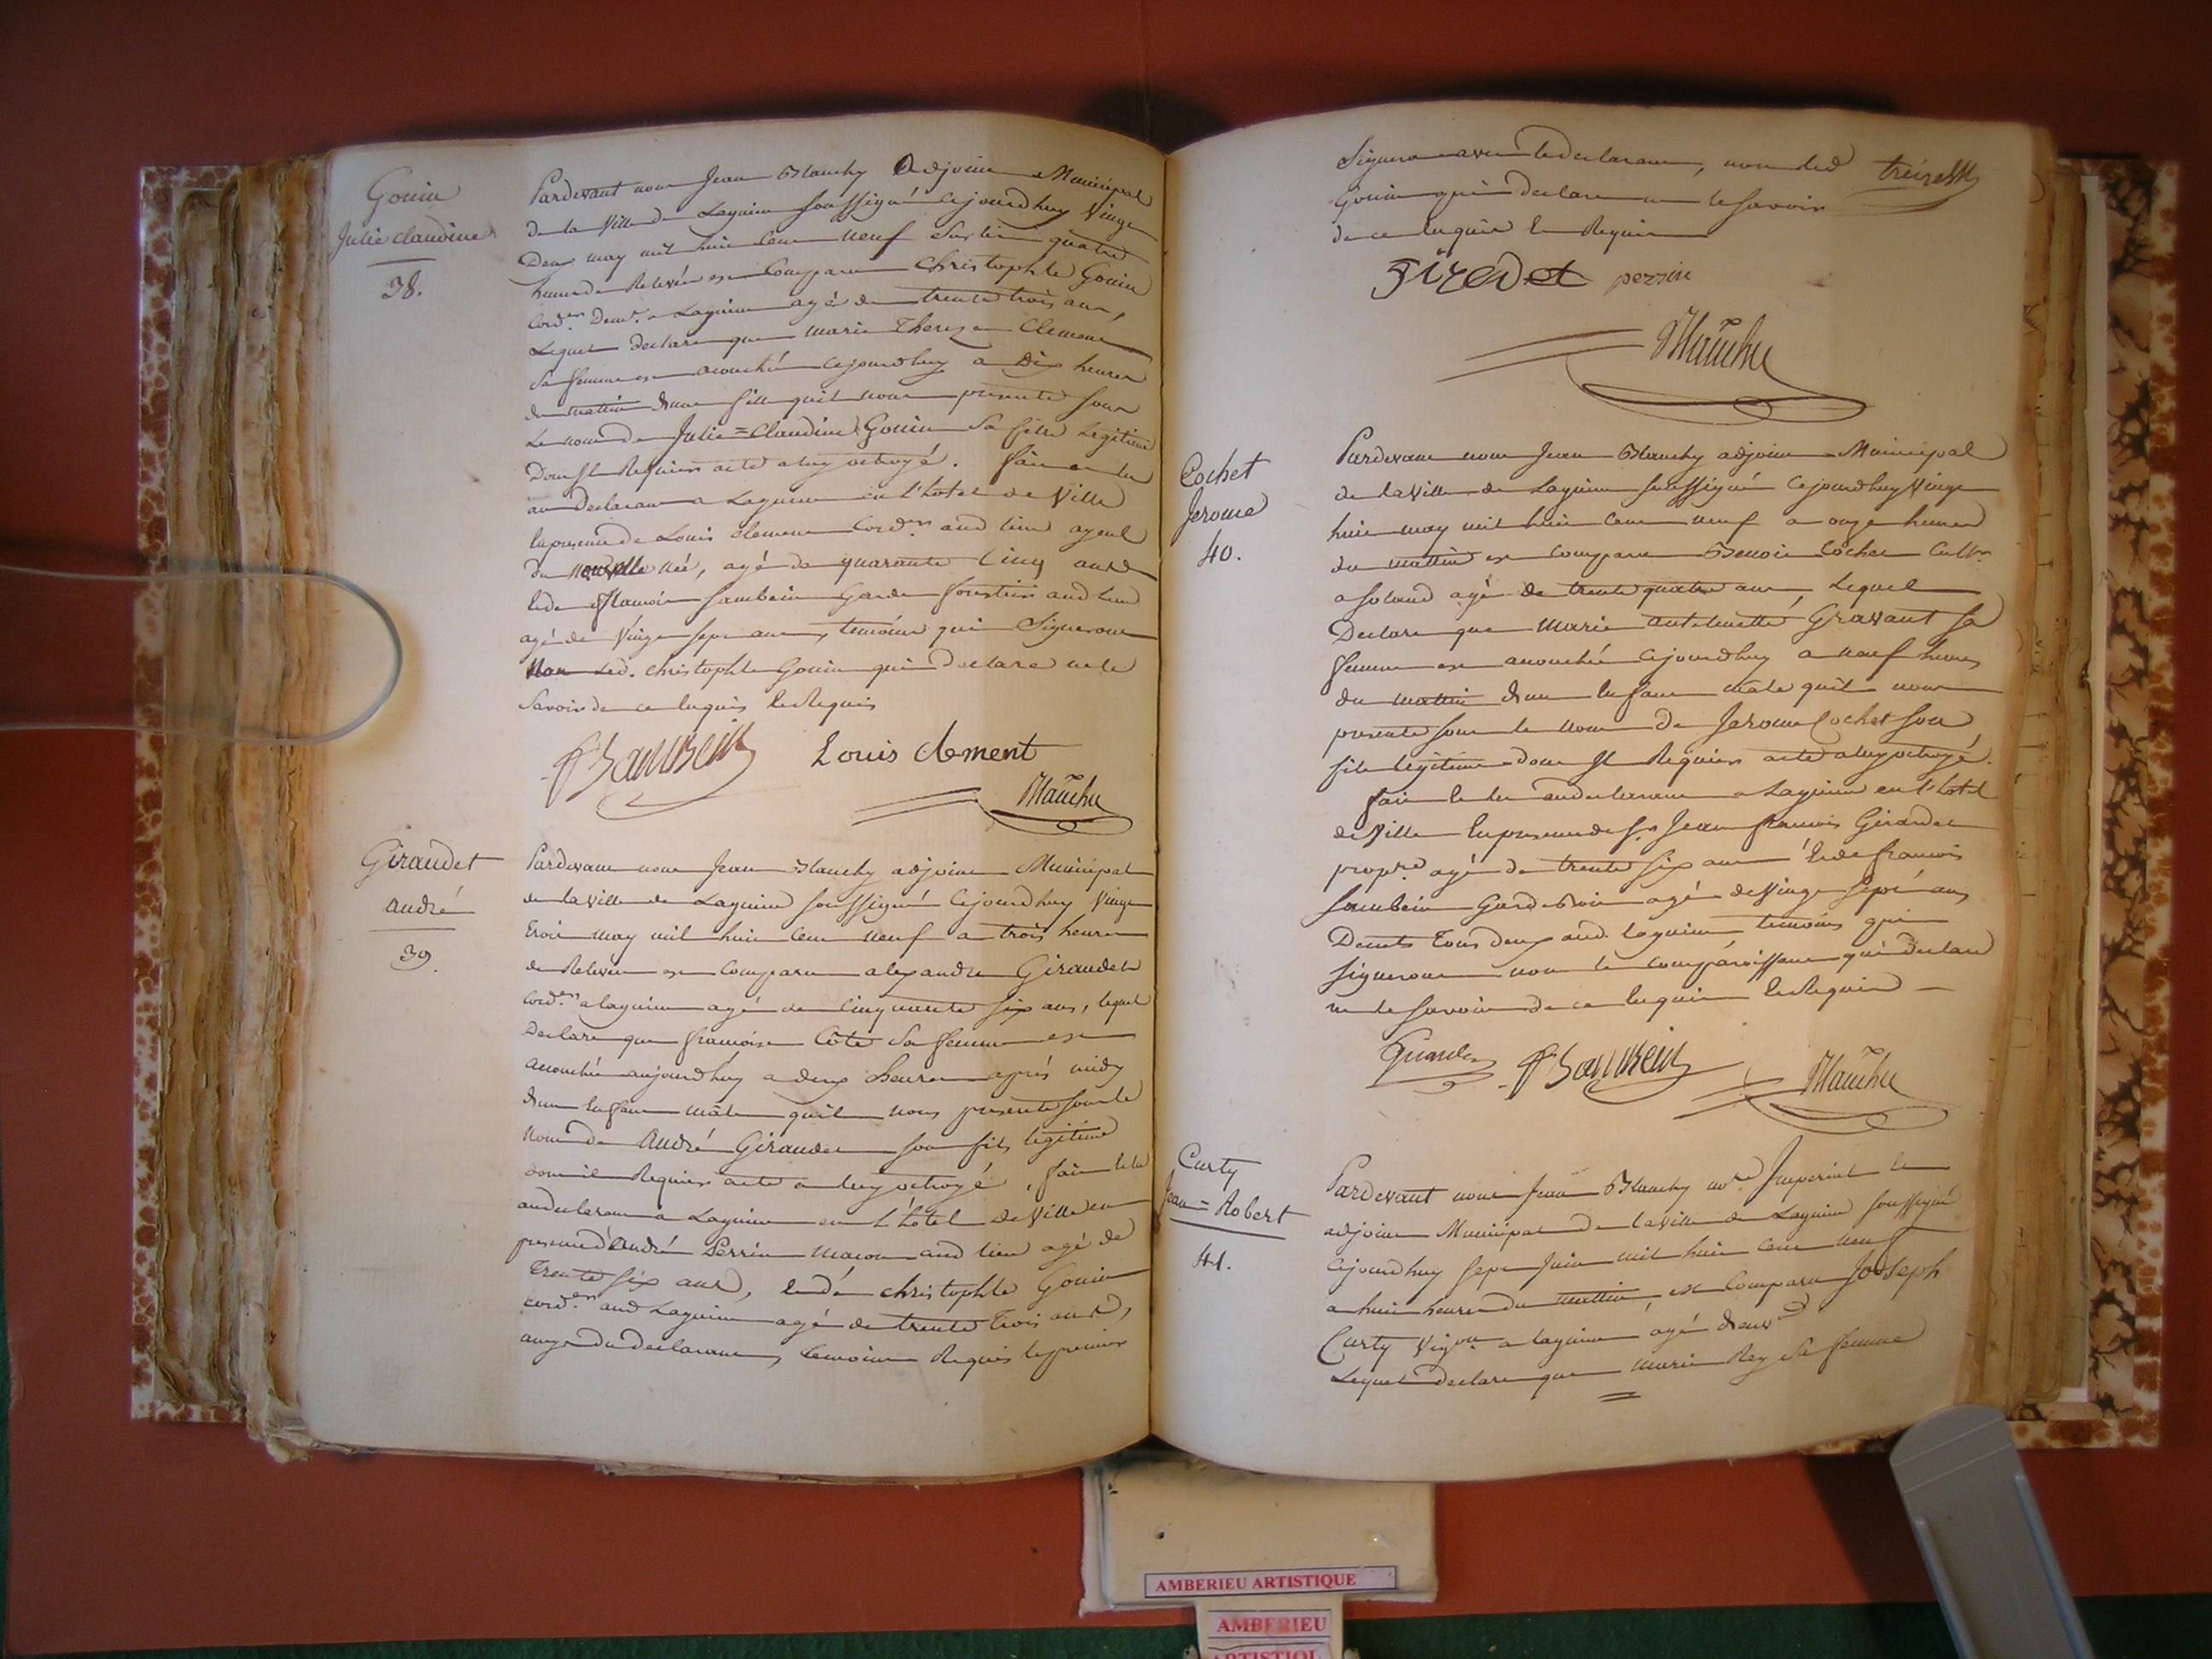 Gouin
Julie Claudine
38.
Pardevant nous Jean Blanchy Adjoint Municipal
de la Ville de Lagnieu soussigné Cejourdhuy Vingt
Deux may mil huit Cent neuf Sur les quatre
heures de Relevée est Comparu Christophle Gouin
Cord.er Dem.t a Lagnieu agé de trente trois ans,
Lequel Declare que marie Therese Clement
Sa femme est acouchée cejourdhuy a Dix heures
du mattin d'une fille quil nous presente sous
Le nom de Julie=Claudine Gouin Sa fille Legitime
Dont Il Requiert acte a luy octroyé. fait et lu
au Declarant a Lagnieu en l'hotel de Ville
En presence de Louis Clement Cord.er aud lieu ayeul
du nouvelle née, agé de quarante Cinq ans
et de françois Sambein Garde forestier aud lieu
agé de Vingt Sept ans, temoins qui Signeront
Non Led. christophle Gouin qui Declare ne le
Savoir de ce Enquis et Requis
f Sambein Louis clement
Blanchy
Giraudet
André
39.
Pardevant nous Jean Blanchy adjoint Municipal
de la Ville de Lagnieu soussigné Cejourdhuy Vingt
trois may mil huit Cent neuf a trois heures
de Relevée est Comparu alexandre Giraudet
Cord.er a lagnieu agé de Cinquante six ans, lequel
Declare que françoise Côte Sa femme est
acouchée aujourdhuy a deux heures après midy
d'un Enfant mâle quil nous presente sous le
Nom de André Giraudet son fils legitime
dont il Requiert acte a luy octroyé, fait et lu
au declarant a Lagnieu en l'hôtel de Ville en
presence d'André Perrin macon aud lieu agé de
Trente six ans, et de christophle Gouin
cord.er aud Lagnieu agé de trente Trois ans,
temoins Requis le premier
Signera avec le declarant, non led
Gouin qui declare ne le savoir
de ce Enquis et Requis
Giredet perrin
Blanchy
Cochet
Jerome
40.
Pardevant nous Jean Blanchy adjoint Municipal
de la Ville de Lagnieu soussigné Cejourdhuy Vingt
huit may mil huit Cent neuf a onze heures
du mattin est comparu Benoit Cochet Cult.r
a agé de trente quatre ans, Lequel
Declare que Marie antelmette Gravant sa
femme est acouchée cejourdhuy a neuf heures
du mattin d'un Enfant mâle quil nous
presente sous le nom de Jerome Cochet son
fils legitime dont Il Requiert acte a luy octroyé.
fait et lu au declarant a Lagnieu en l'hotel
de Ville En presence de Sr Jean françois Girardet
propre. agé de trente six ans et de françois
Sambein Garde Bois agé de Vingt sept ans
Demts Tous deux aud. lagnieu temoins qui
signeront non le comparoissant qui declare
ne le savoir de ce Enquis et Requis
f Sambein Blanchy
Curty
Jean=Robert
41.
Pardevant nous Jean Blanchy no.re Imperial et
adjoint Municipal de la Ville de Lagnieu soussigné
Cejourdhuy sept Juin mil huit Cent neuf
a huit heures du mattin, est Comparu Joseph
Curty Vig.on a lagnieu agé
Lequel declare que Marie Rey Sa femme
AMBERIEU ARTISTIQUE
AMBERIEU